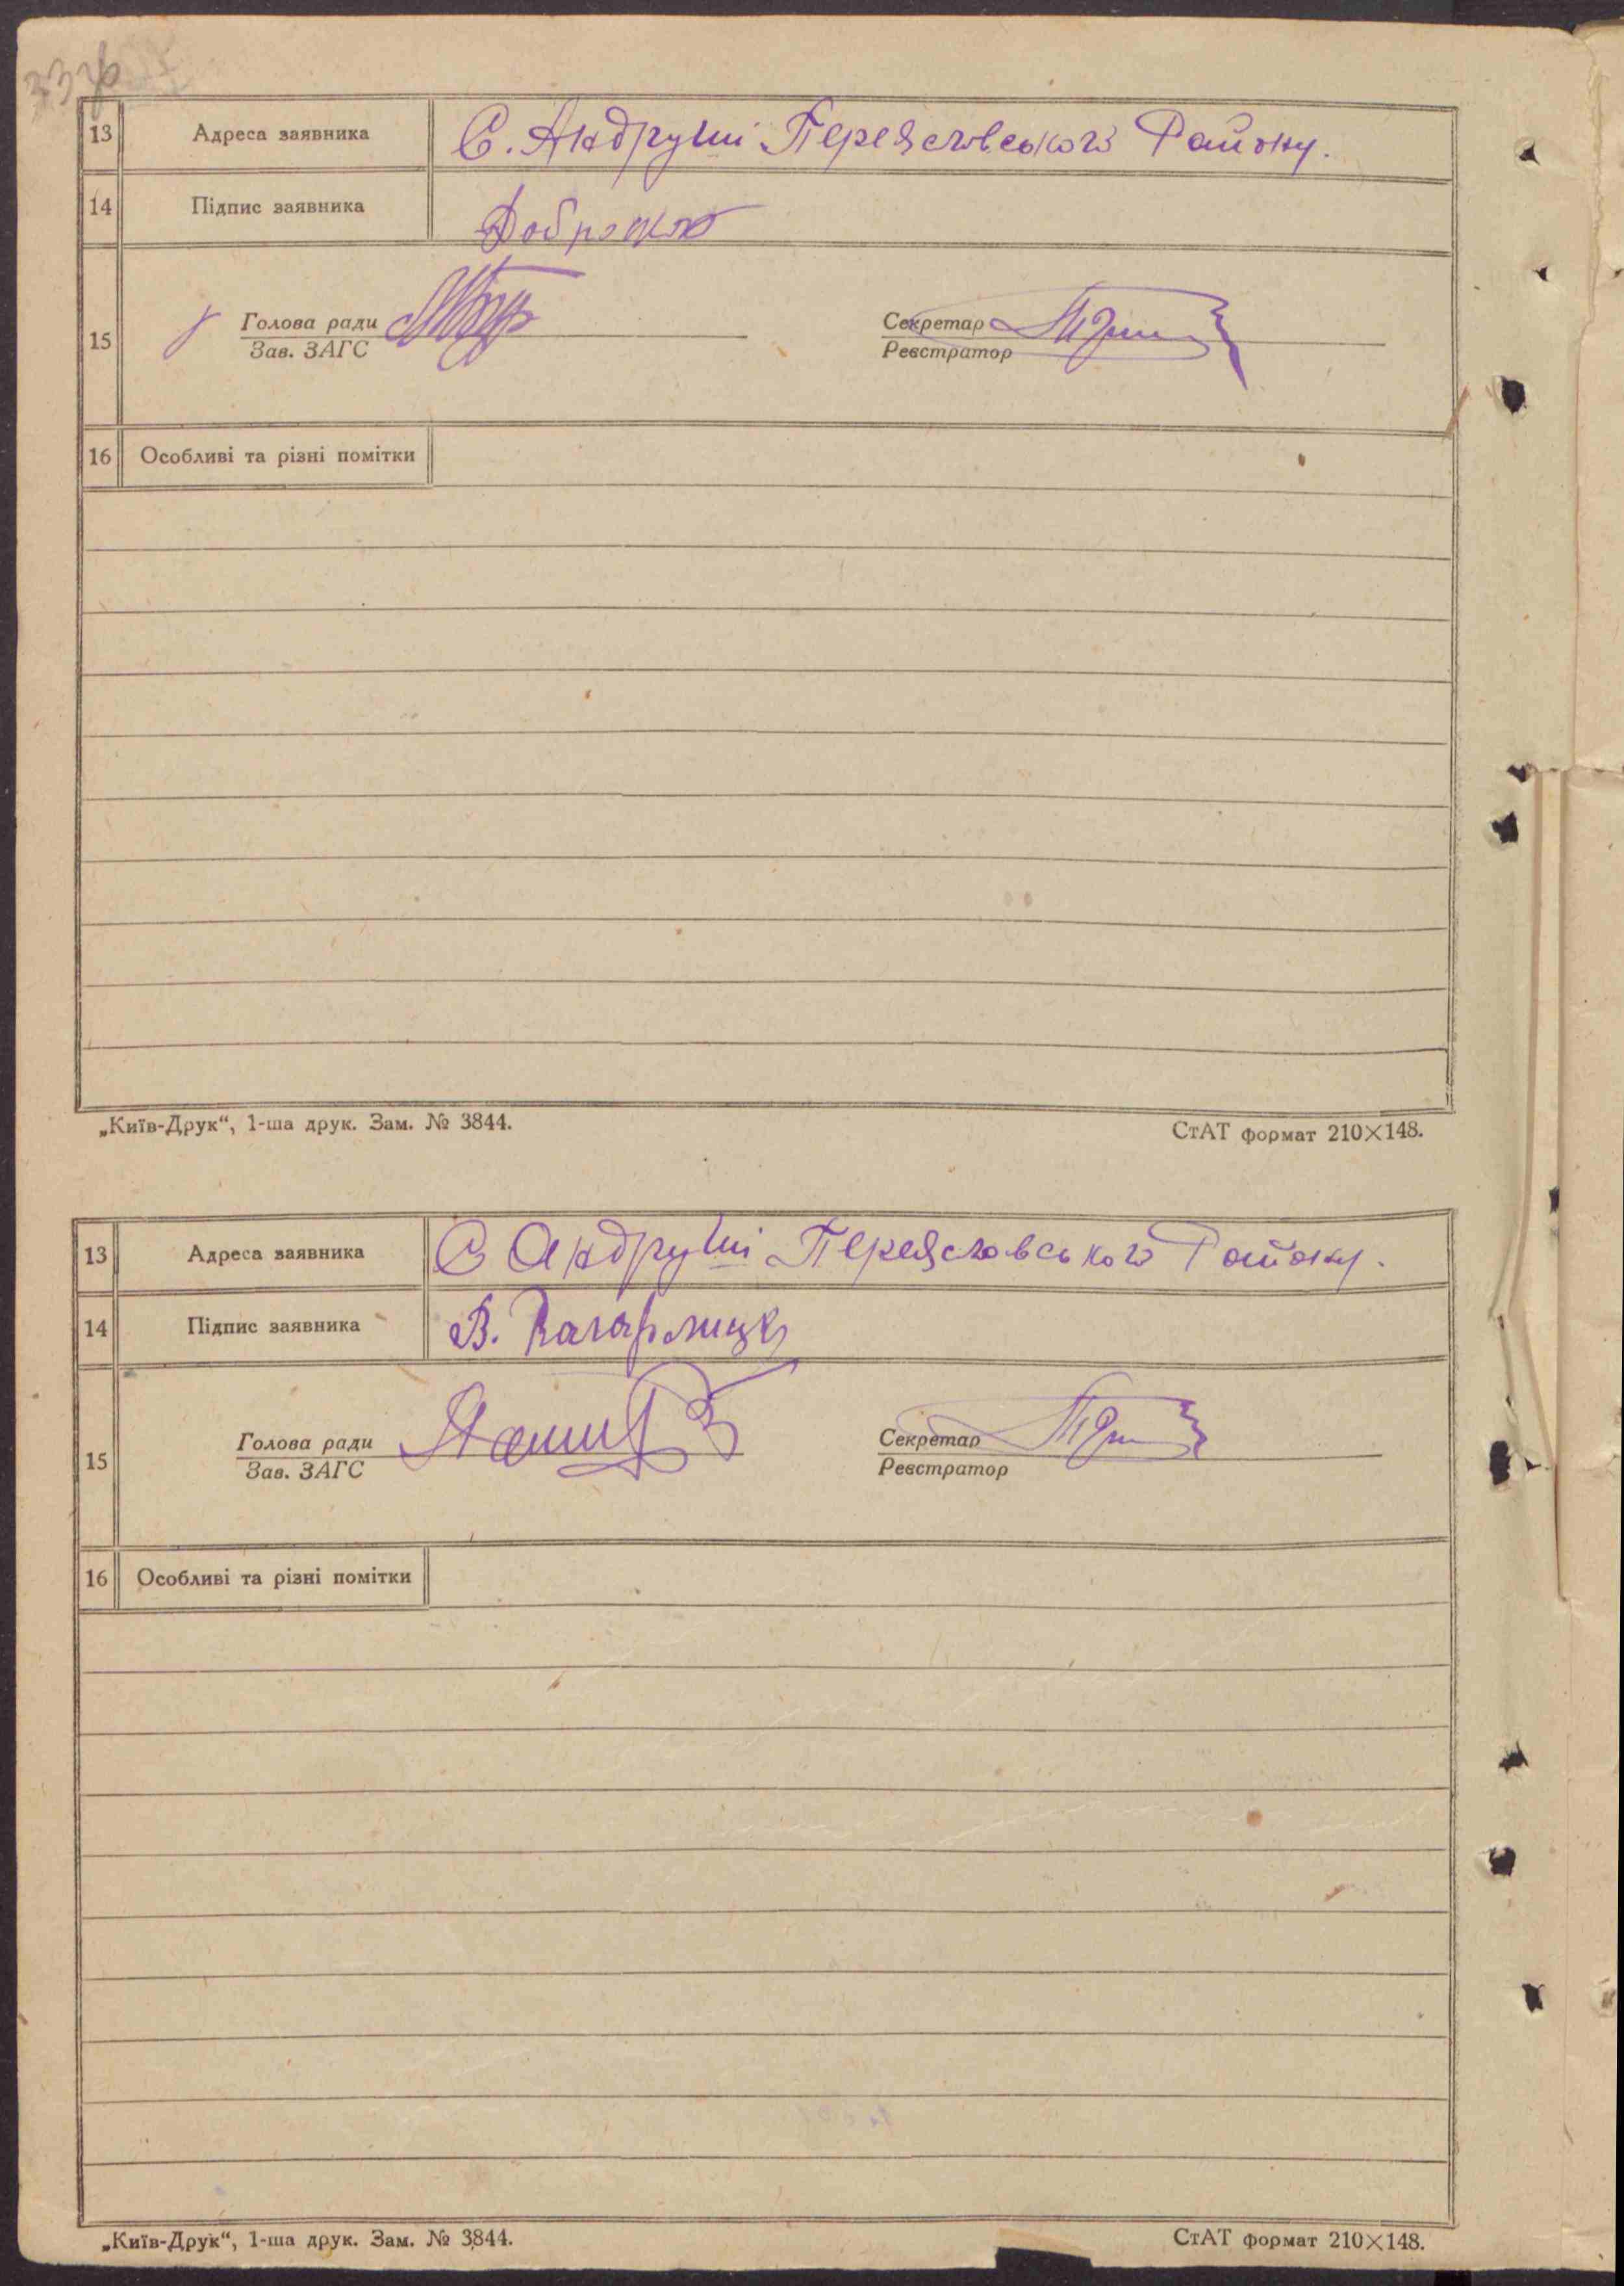 13 Адреса заявника С. Андруші Переяславського Району.
14 Підпис заявника
15 Голова ради Секретар
Зав. ЗАГС Реєстратор
16 Особливі та різні помітки
„Київ-Друк“, 1-ша друк. Зам. № 3844. СтАТ формат 210×148.
13 Адреса заявника С Андруші Переяславського Району.
14 Підпис заявника В. Кагарлицк
15 Голова ради Секретар
Зав. ЗАГС Реєстратор
16 Особливі та різні помітки
„Київ-Друк“, 1-ша друк. Зам. № 3844. СтАТ формат 210×148.